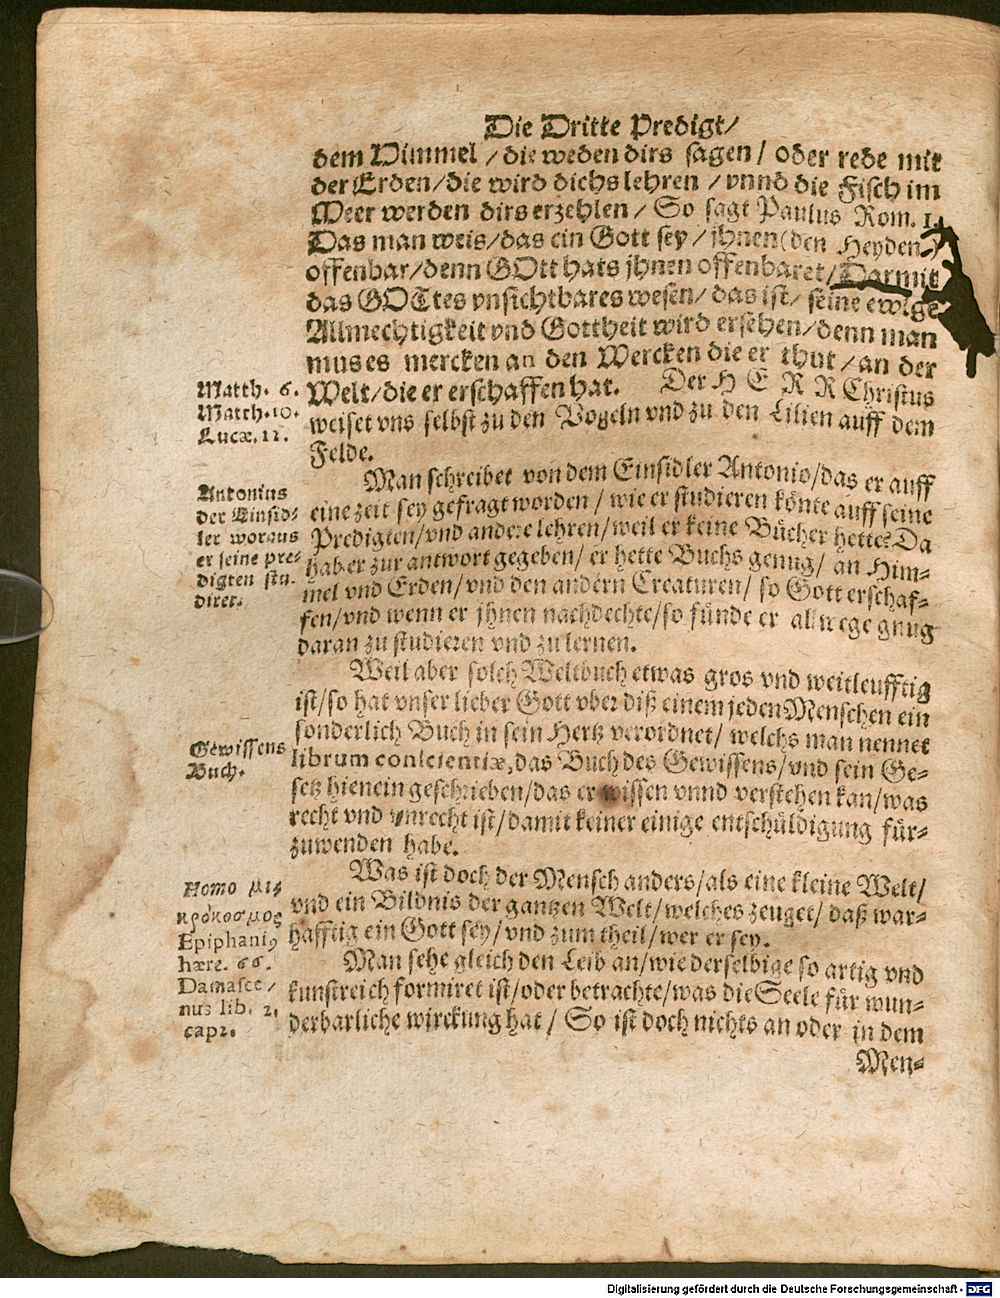 Die Dritte Predigt/
dem Himmel /die weden dirs sagen / oder rede mit
der Erden/die wird dichs lehren / vnnd die Fisch im
Meer werden dirs erzehlen/ So sagt Paulus Rom. 1.
Das man weis/das ein Gott sey/ jhnen (den Heyden)
offenbar/denn GOtt hats jhnen offenbaret/Darmit
das GOTtes vnsichtbares wesen/ das ist/ seine ewige
Allmechtigkeit vnd Gottheit wird ersehen/denn man
mus es mercken an den Wercken die er thut /an der
Welt/die er erschaffen hat. Der H E R R Christus
weiset vns selbst zu den Vogeln vnd zu den Lilien auff dem
Felde.
Matth. 6.
Matth. 10.
Lucæ. 11.
Man schreibet von dem Einsidler Antonio/das er auff
eine zeit sey gefragt worden / wie er studieren könte auff seine
Predigten/vnd andere lehren/weil er keine Bücher hette? Da
hab er zur antwort gegeben/ er hette Buchs genug/ an Him-
mel vnd Erden/vnd den andern Creaturen/ so Gott erschaf-
fen/vnd wenn er jhnen nachdechte/so fünde er allwege gnug
daran zu studieren vnd zu lernen.
Antonius
der Einsid-
ler woraus
er seine pre-
digten stu-
diret.
Weil aber solch Weltbuch etwas gros vnd weitleufftig
ist/so hat vnser lieber Gott vber diß einem jeden Menschen ein
sonderlich Buch in sein Hertz verordnet/ welchs man nennet
librum conscientiæ, das Buch des Gewissens/vnd sein Ge-
setz hienein geschrieben/das er wissen vnnd verstehen kan/was
recht vnd vnrecht ist/damit keiner einige entschüldigung für-
zuwenden habe.
Gewissens
Buch.
Was ist doch der Mensch anders/als eine kleine Welt/
vnd ein Bildnis der gantzen Welt/welches zeuget/ daß war-
hafftig ein Gott sey/vnd zum theil/wer er sey.
Man sehe gleich den Leib an/wie derselbige so artig vnd
kunstreich formiret ist/oder betrachte/was die Seele für wun-
derbarliche wirckung hat / So ist doch nichts an oder in dem
Homo μι-
κρόκοσμος
Epiphaniꝰ
hære. 66.
Damasce/
nus lib. 2.
cap2.
Men-
Digitalisierung gefördert durch die Deutsche Forschungsgemeinschaft - DFG